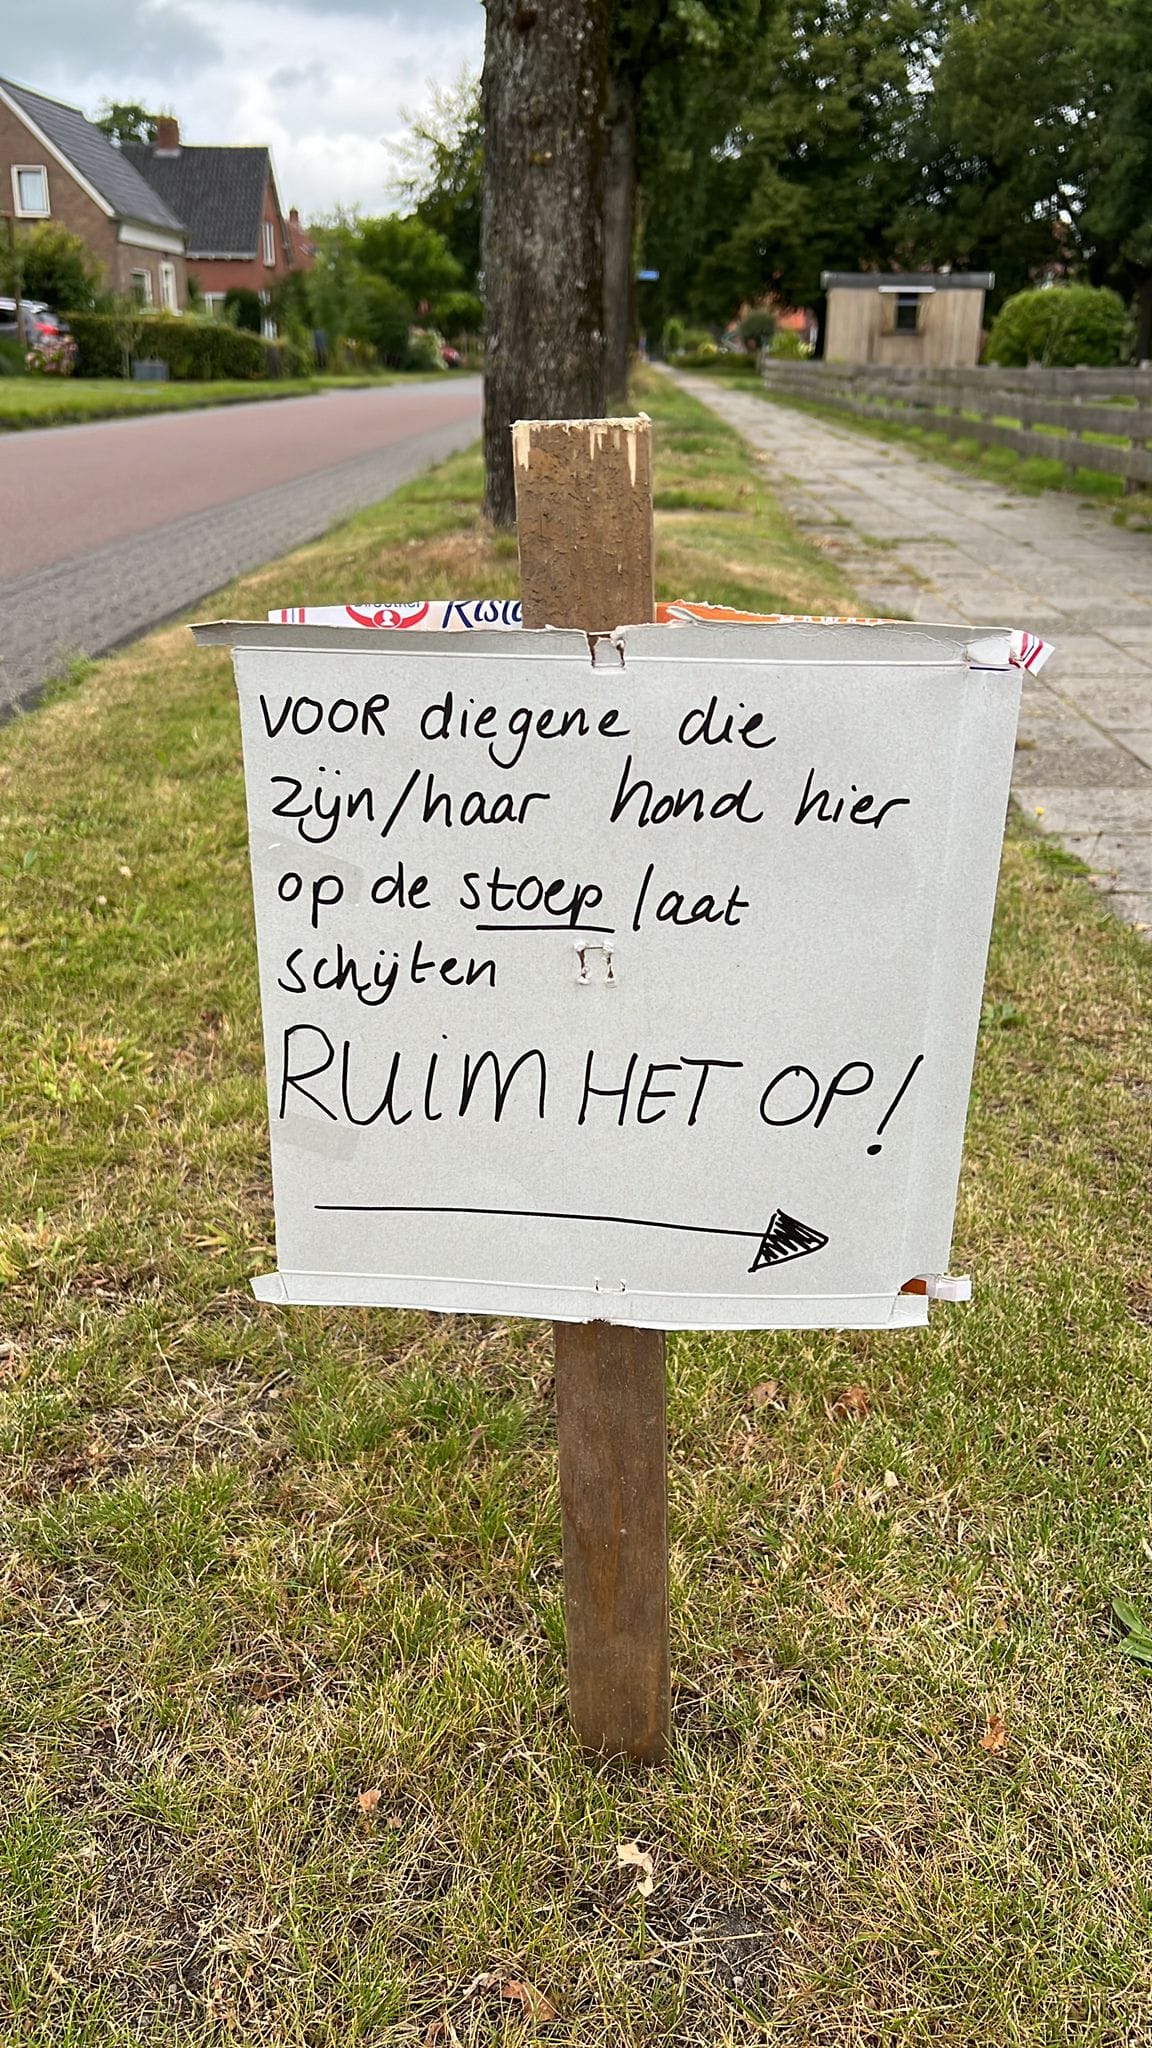 VOOR diegene die
zijn/haar hond hier
op de stoep laat
schijten
RUIM HET OP!